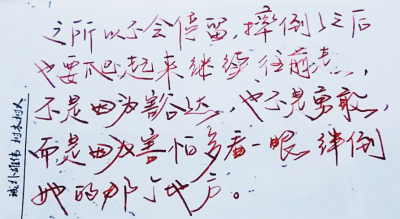 之所以不会停留,摔倒之后
也要爬起来继续往前走,
不是因为豁达,也不是勇敢,
而是因为害怕多看一眼绊倒
她的那个地方。